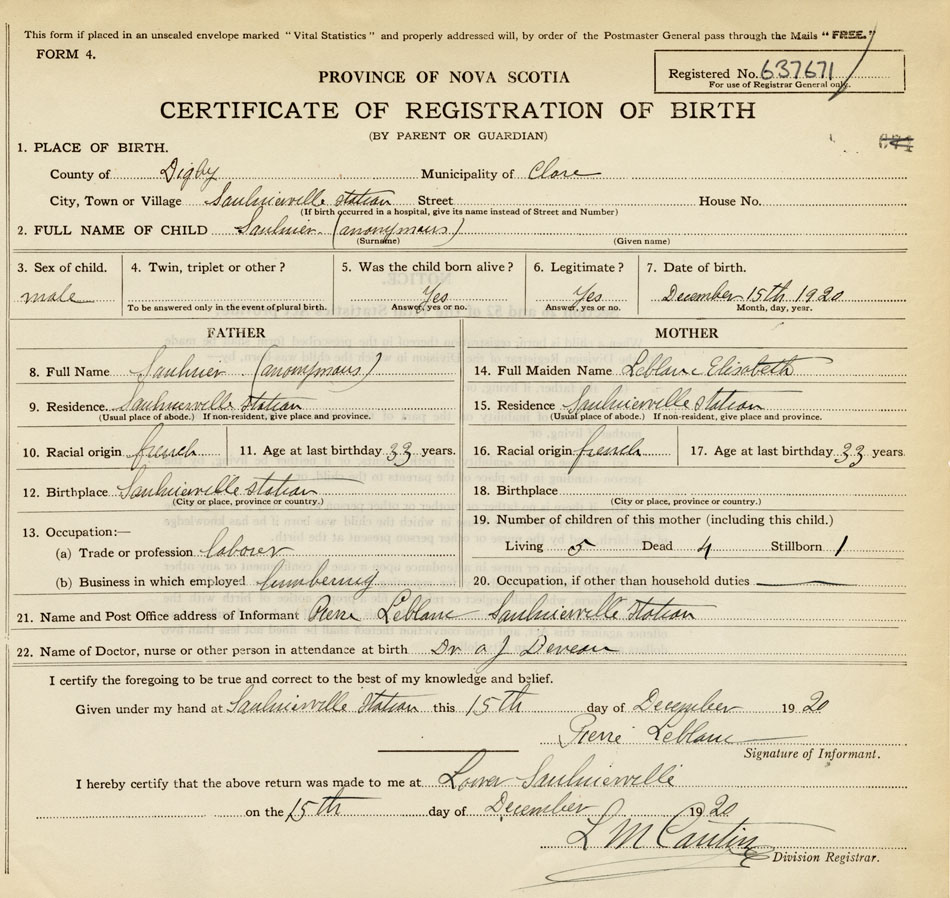 This form if placed in an unsealed envelope marked "Vital Statistics" and properly addressed will, by order of the Postmaster General pass through the Mails "FREE."
FORM 4.
Registered No. 637671
For use of Registrar General only.
PROVINCE OF NOVA SCOTIA
CERTIFICATE OF REGISTRATION OF BIRTH
(BY PARENT OR GUARDIAN)
1. PLACE OF BIRTH.
County of Digby Municipality of Clare
City, Town or Village Saulnierville Station Street House No.
(If birth occurred in a hospital, give its name instead of Street and Number)
2. FULL NAME OF CHILD Saulnier (anonymous)
(Surname) (Given name)
3. Sex of child. 4. Twin, triplet or other? 5. Was the child born alive? 6. Legitimate? 7. Date of birth.
male Yes Yes December 15th 1920
To be answered only in the event of plural birth. Answer, yes or no. Answer, yes or no. Month, day, year.
FATHER MOTHER
8. Full Name Saulnier (anonymous) 14. Full Maiden Name Leblanc Elisabeth
9. Residence Saulnierville Station 15. Residence Saulnierville Station
(Usual place of abode.) If non-resident, give place and province. (Usual place of abode.) If non-resident, give place and province.
10. Racial origin french 11. Age at last birthday 33 years. 16. Racial origin french 17. Age at last birthday 33 years.
12. Birthplace Saulnierville Station 18. Birthplace
(City or place, province or country.) (City or place, province or country.)
13. Occupation:— 19. Number of children of this mother (including this child.)
(a) Trade or profession laborer Living 5 Dead 4 Stillborn 1
(b) Business in which employed lumbering 20. Occupation, if other than household duties
21. Name and Post Office address of Informant Pierre Leblanc Saulnierville Station
22. Name of Doctor, nurse or other person in attendance at birth Dr a J Deveau
I certify the foregoing to be true and correct to the best of my knowledge and belief.
Given under my hand at Saulnierville Station this 15th day of December 1920
Pierre Leblanc
Signature of Informant.
I hereby certify that the above return was made to me at Lower Saulnierville
on the 15th day of December 1920
L M Cantin
Division Registrar.